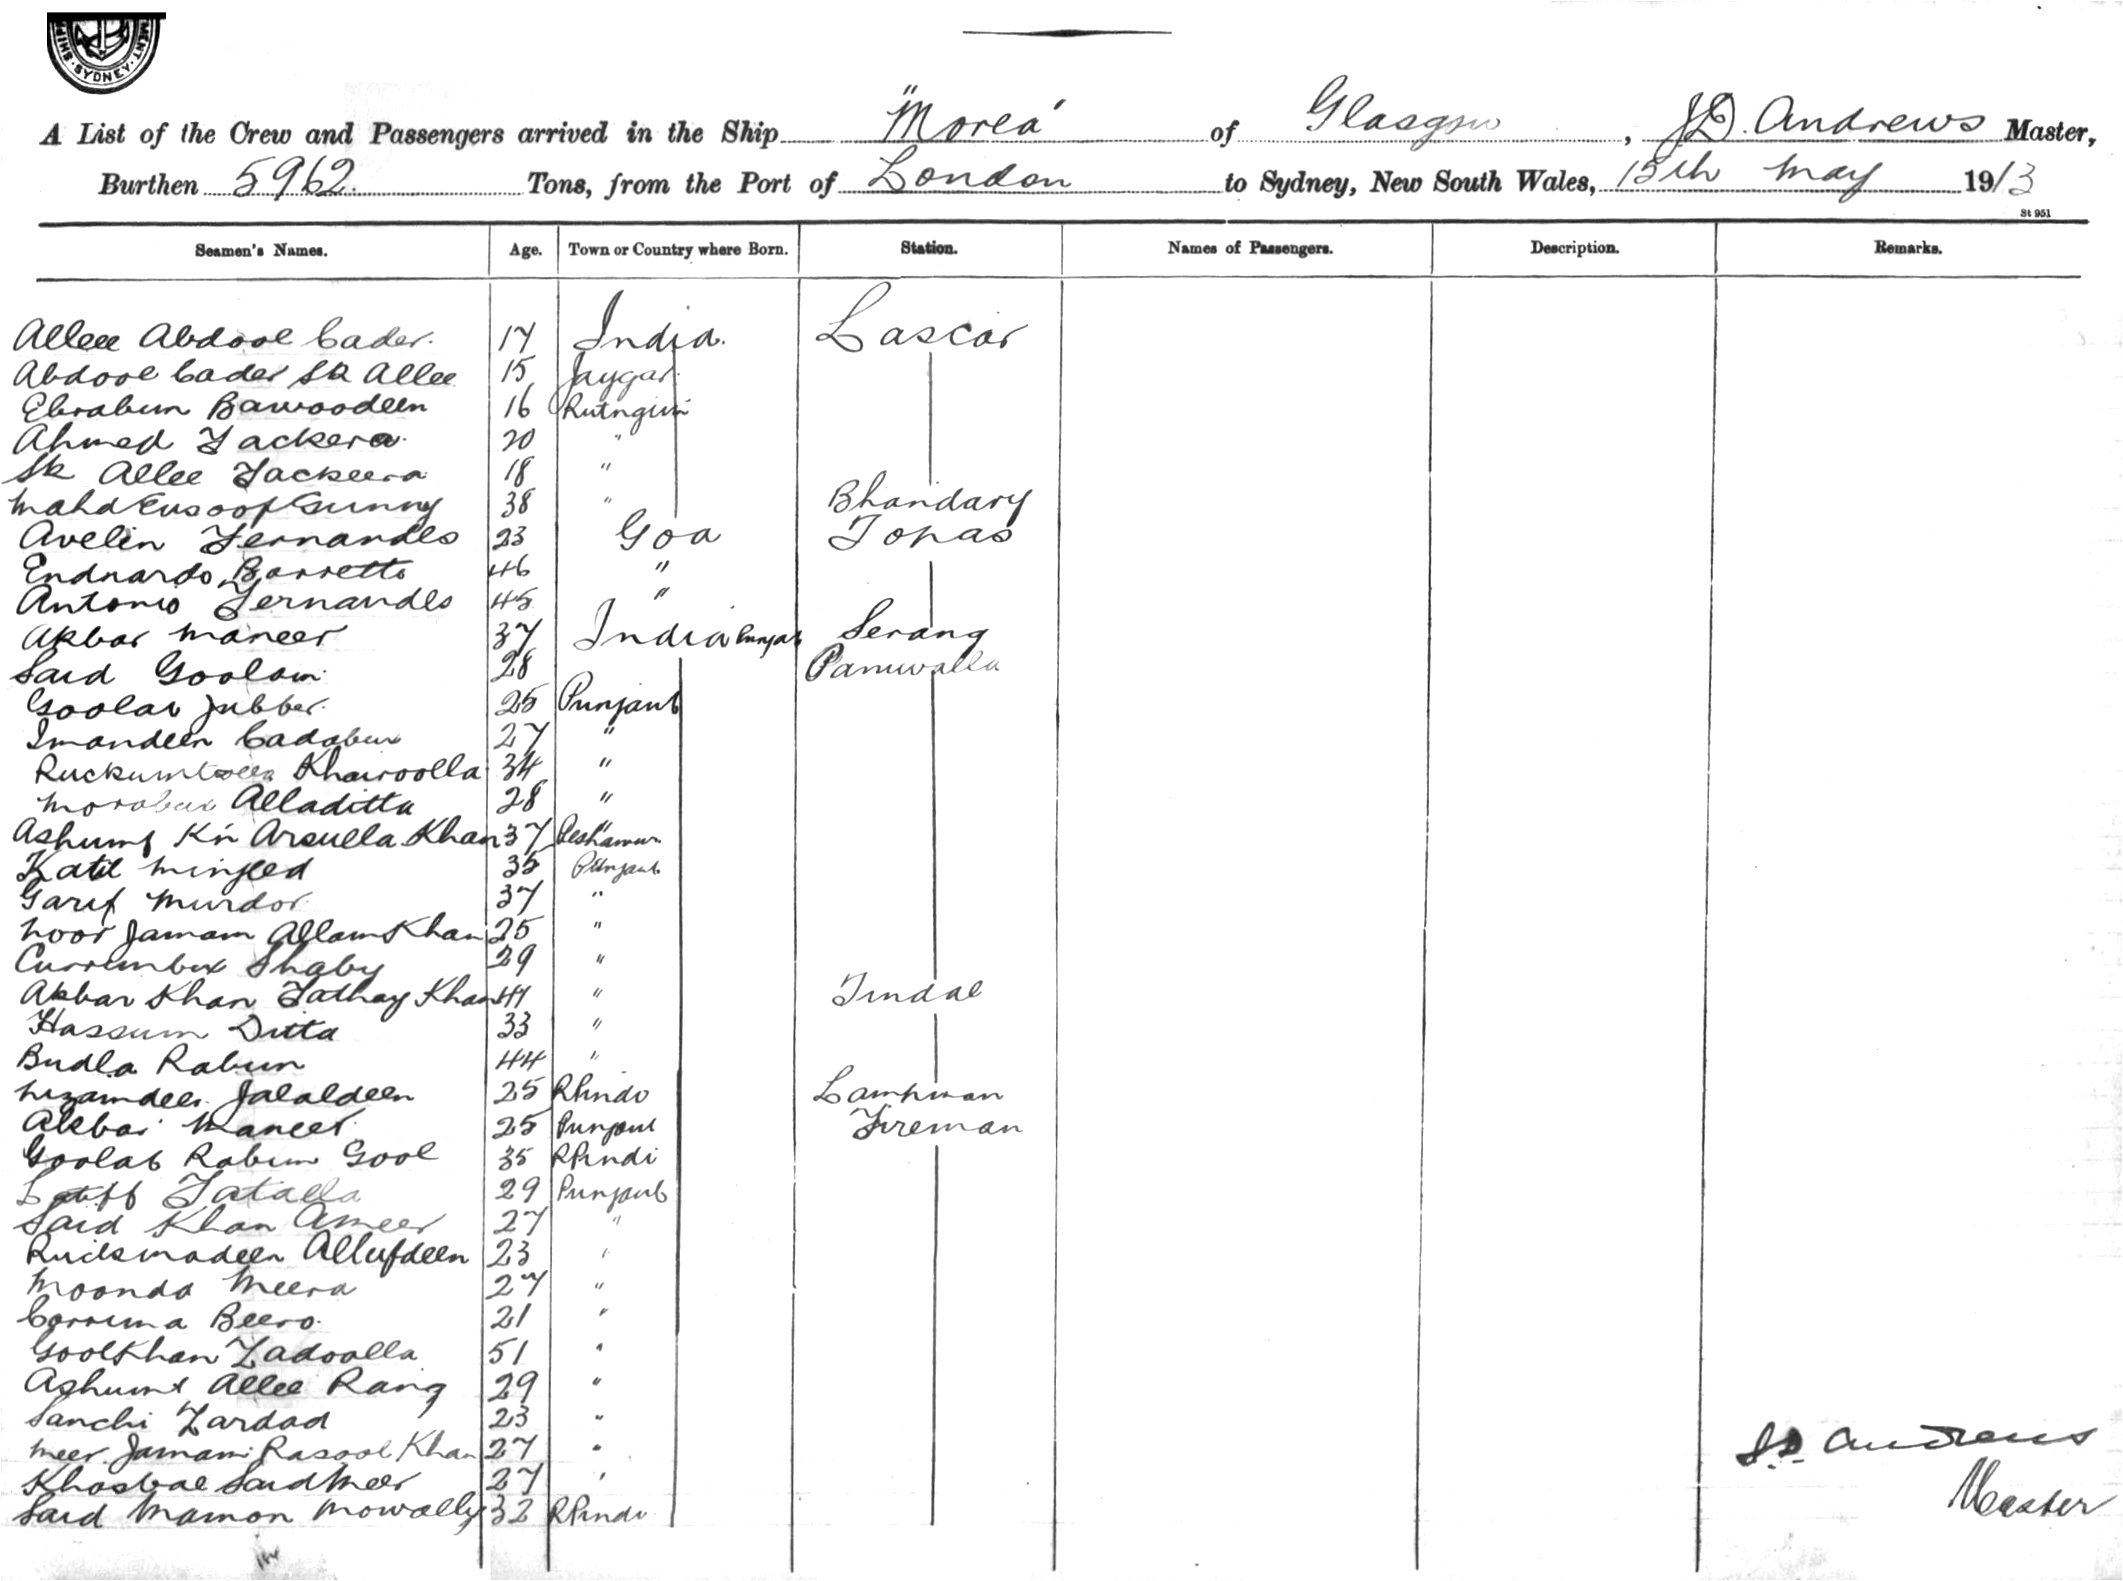 MENT · SYDNEY · SHIP
A List of the Crew and Passengers arrived in the Ship "Morea" of Glasgow, J.D. Andrews Master,
Burthen 5962 Tons, from the Port of London to Sydney, New South Wales, 15th May 1913
St 951
Seamen's Names. Age. Town or Country where Born. Station. Names of Passengers. Description. Remarks.
Allee Abdool Cader. 17 India. Lascar
Abdool Cader Sk Allee 15 Jaygar
Ebrahim Bawoodeen 16 Rutngiri
Ahmed Fackera 20 "
Sk Allee Fackeera 18 "
Mahd Eusoof Gunny 38 " Bhandary
Avelin Fernandes 23 Goa Topas
Eduardo Barretto 46 "
Antonio Fernandes 45 "
Akbar Maneer 37 India Punjab Serang
Said Goolam 28 Paniwalla
Goolab Jubber. 25 Punjaub
Imandeen Cadabux 27 "
Khairoolla 34 "
Alladitta 28 "
Ashumt Kn Arsulla Khan 37 Peshawur
Katil Mingled 35 Punjaub
Garif Murdor 37 "
Noor Jamam Allam Khan 25 "
Currumbux Shaby 29 "
Akbar Khan Fathay Khan 41 " Tindal
Hassum Ditta 33 "
Budla Rahim 44 "
Nizamdeen Jalaldeen 25 RPindi Lampman
Akbar Maneer 25 Punjaub Fireman
Goolab Rahim Gool 35 RPindi
Latiff Fatalla 29 Punjaub
Said Khan Ameer 27 "
Ruckmadeen Allufdeen 23 "
Moonda Meera 27 "
Corrima Beero 21 "
Goolkhan Zadoolla 51 "
Ashumt Allee Rang 29 "
Sanchi Zardad 23 "
Meer Jamam Rasool Khan 27 " J.D. Andrews
Khasbal Said Meer 27 " Master
Said Mamon Mowally 32 RPindi